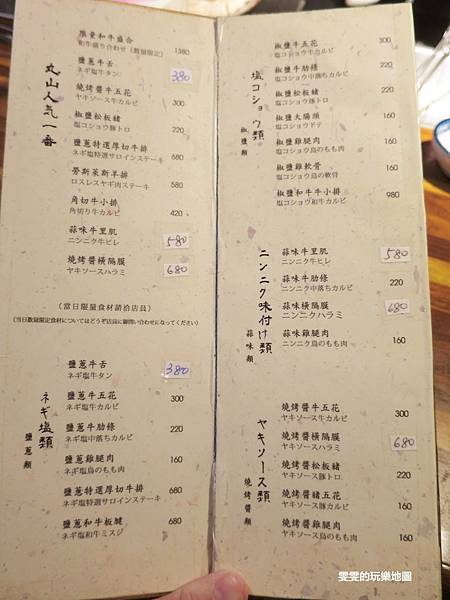 丸山人気一番
限量和牛盛合
和牛盛り合わせ（数量限定） 1580
鹽蔥牛舌
ネギ塩牛タン 380
燒烤醬牛五花
ヤキソース牛カルビ 300
椒鹽松板豬
塩コショウ豚トロ 220
鹽蔥特選厚切牛排
ネギ塩特選サロインステーキ 680
勞斯萊斯羊排
ロスレスヤギ肉ステーキ 580
角切牛小排
角切り牛カルビ 420
蒜味牛里肌
ニンニク牛ヒレ 580
燒烤醬橫隔膜
ヤキソースハラミ 680
（當日限量食材請洽店員）
（当日数量限定食材についてはどうぞ店員に御問い合わせになってください）
ネギ塩類
鹽蔥類
鹽蔥牛舌
ネギ塩牛タン 380
鹽蔥牛五花
ネギ塩牛カルビ 300
鹽蔥牛肋條
ネギ塩中落ちカルビ 220
鹽蔥雞腿肉
ネギ塩鳥のもも肉 160
鹽蔥特選厚切牛排
ネギ塩特選サロインステーキ 680
鹽蔥和牛板腱
ネギ塩和牛ミスジ 680
塩コショウ類
椒鹽類
椒鹽牛五花
塩コショウ牛カルビ 300
椒鹽牛肋條
塩コショウ中落ちカルビ 220
椒鹽松板豬
塩コショウ豚トロ 220
椒鹽大腸頭
塩コショウドテ 160
椒鹽雞腿肉
塩コショウ鳥のもも肉 160
椒鹽雞軟骨
塩コショウ鳥の軟骨 160
椒鹽和牛牛小排
塩コショウ和牛カルビ 980
ニンニク味付け類
蒜味類
蒜味牛里肌
ニンニク牛ヒレ 580
蒜味牛肋條
ニンニク中落ちカルビ 220
蒜味橫隔膜
ニンニクハラミ 680
蒜味雞腿肉
ニンニク鳥のもも肉 160
ヤキソース類
燒烤醬類
燒烤醬牛五花
ヤキソース牛カルビ 300
燒烤醬橫隔膜
ヤキソースハラミ 680
燒烤醬松板豬
ヤキソース豚トロ 220
燒烤醬豬五花
ヤキソース豚カルビ 160
燒烤醬雞腿肉
ヤキソース鳥のもも肉 160
雯雯的玩樂地圖